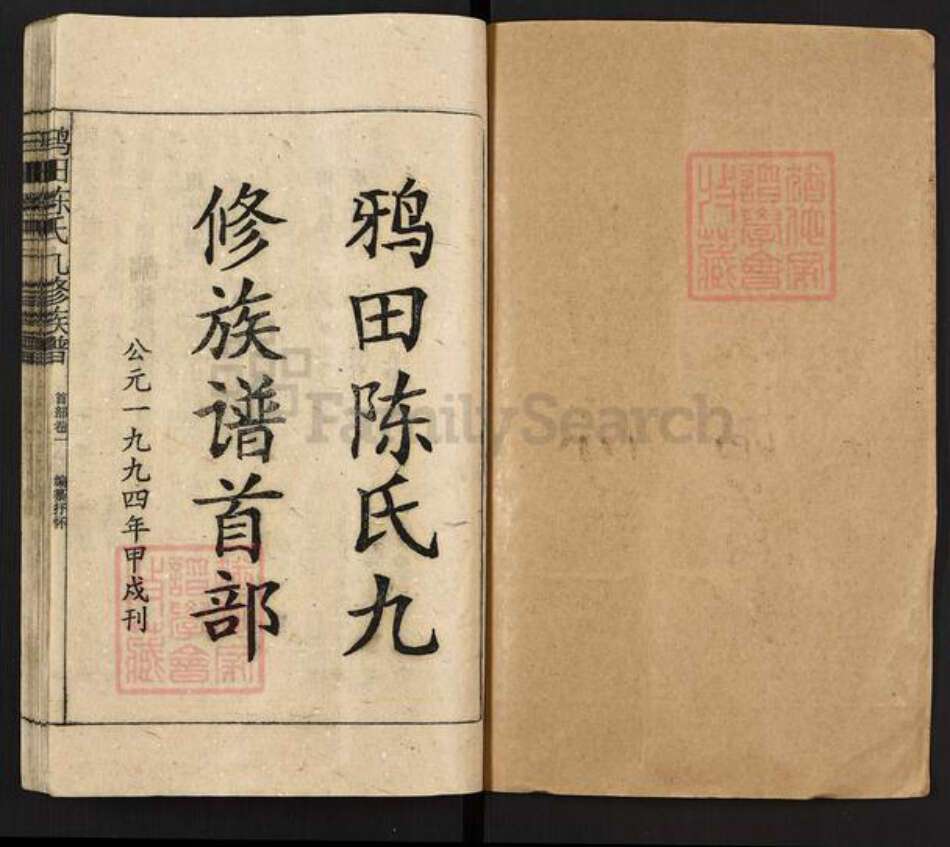 鸦田陈氏九
修族谱首部
公元一九九四年甲戍刊
鸦田陈氏九修族谱
首部卷一
编纂抒怀
FamilySearch